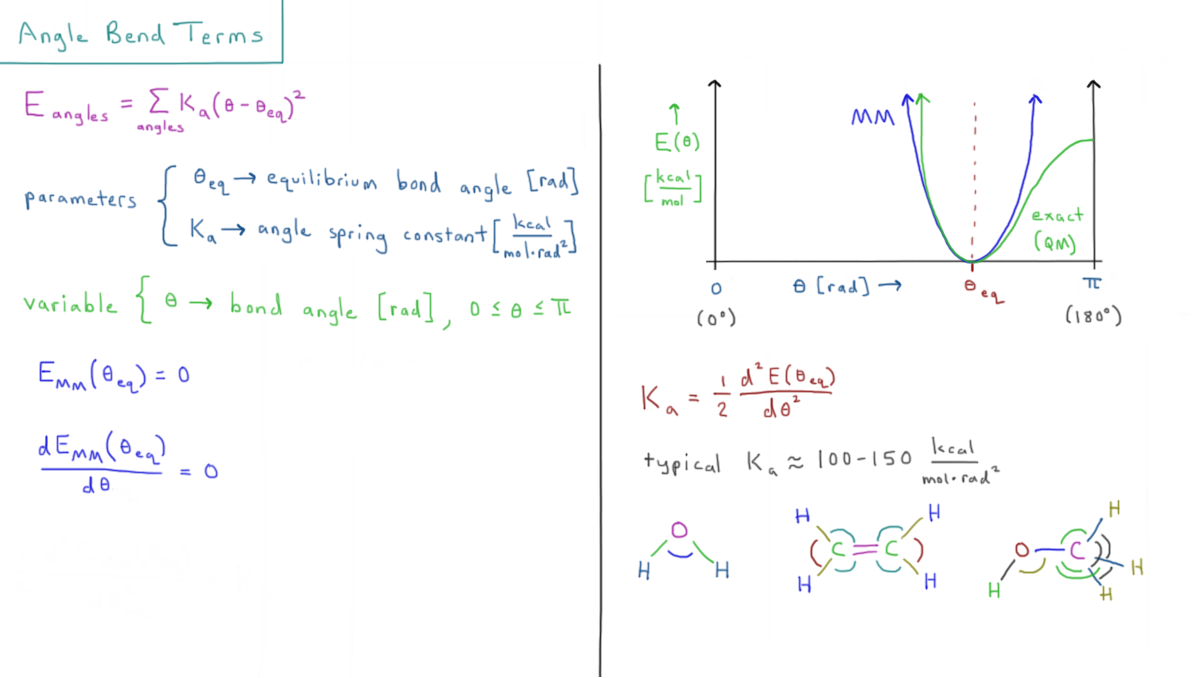 Angle Bend Terms
E angles = Σ Kₐ(θ - θeq)²
angles
parameters { θeq → equilibrium bond angle [rad]
Kₐ → angle spring constant [kcal/mol·rad²]
variable { θ → bond angle [rad], 0 ≤ θ ≤ π
E_MM(θeq) = 0
dE_MM(θeq)/dθ = 0
↑
E(θ)
[kcal/mol]
MM
exact
(QM)
0 θ [rad] → θeq π
(0°) (180°)
Kₐ = 1/2 d²E(θeq)/dθ²
typical Kₐ ≈ 100-150 kcal/mol·rad²
O
H H
H H
C=C
H H
H
O-C
H
H H